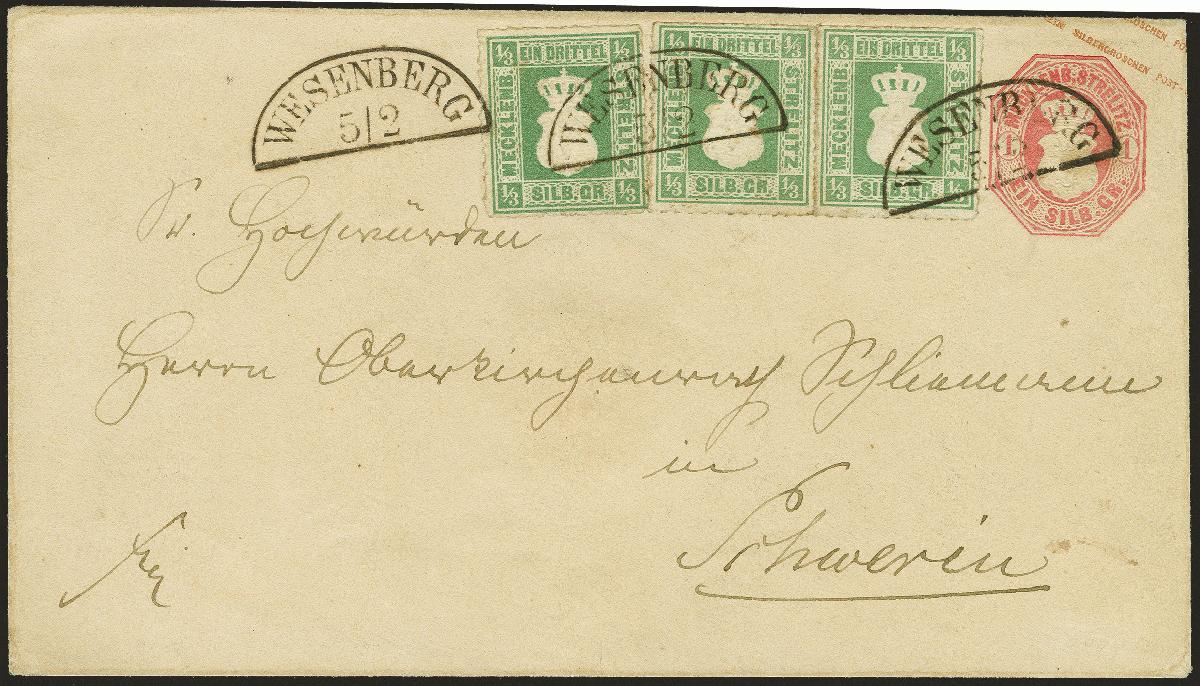 WESENBERG
5/2
1/3 EIN DRITTEL 1/3
MECKLENB. STRELITZ
1/3 SILB. GR. 1/3
WESENBERG
5/2
1/3 EIN DRITTEL 1/3
MECKLENB. STRELITZ
1/3 SILB. GR. 1/3
1/3 EIN DRITTEL 1/3
MECKLENB. STRELITZ
1/3 SILB. GR. 1/3
WESENBERG
5/2
SILBERGROSCHEN POST
MECKLENB. STRELITZ
1 1
EIN SILB. GR.
Sr. Hochwürden
Herrn Oberkirchenrath Schliemann
in
Schwerin